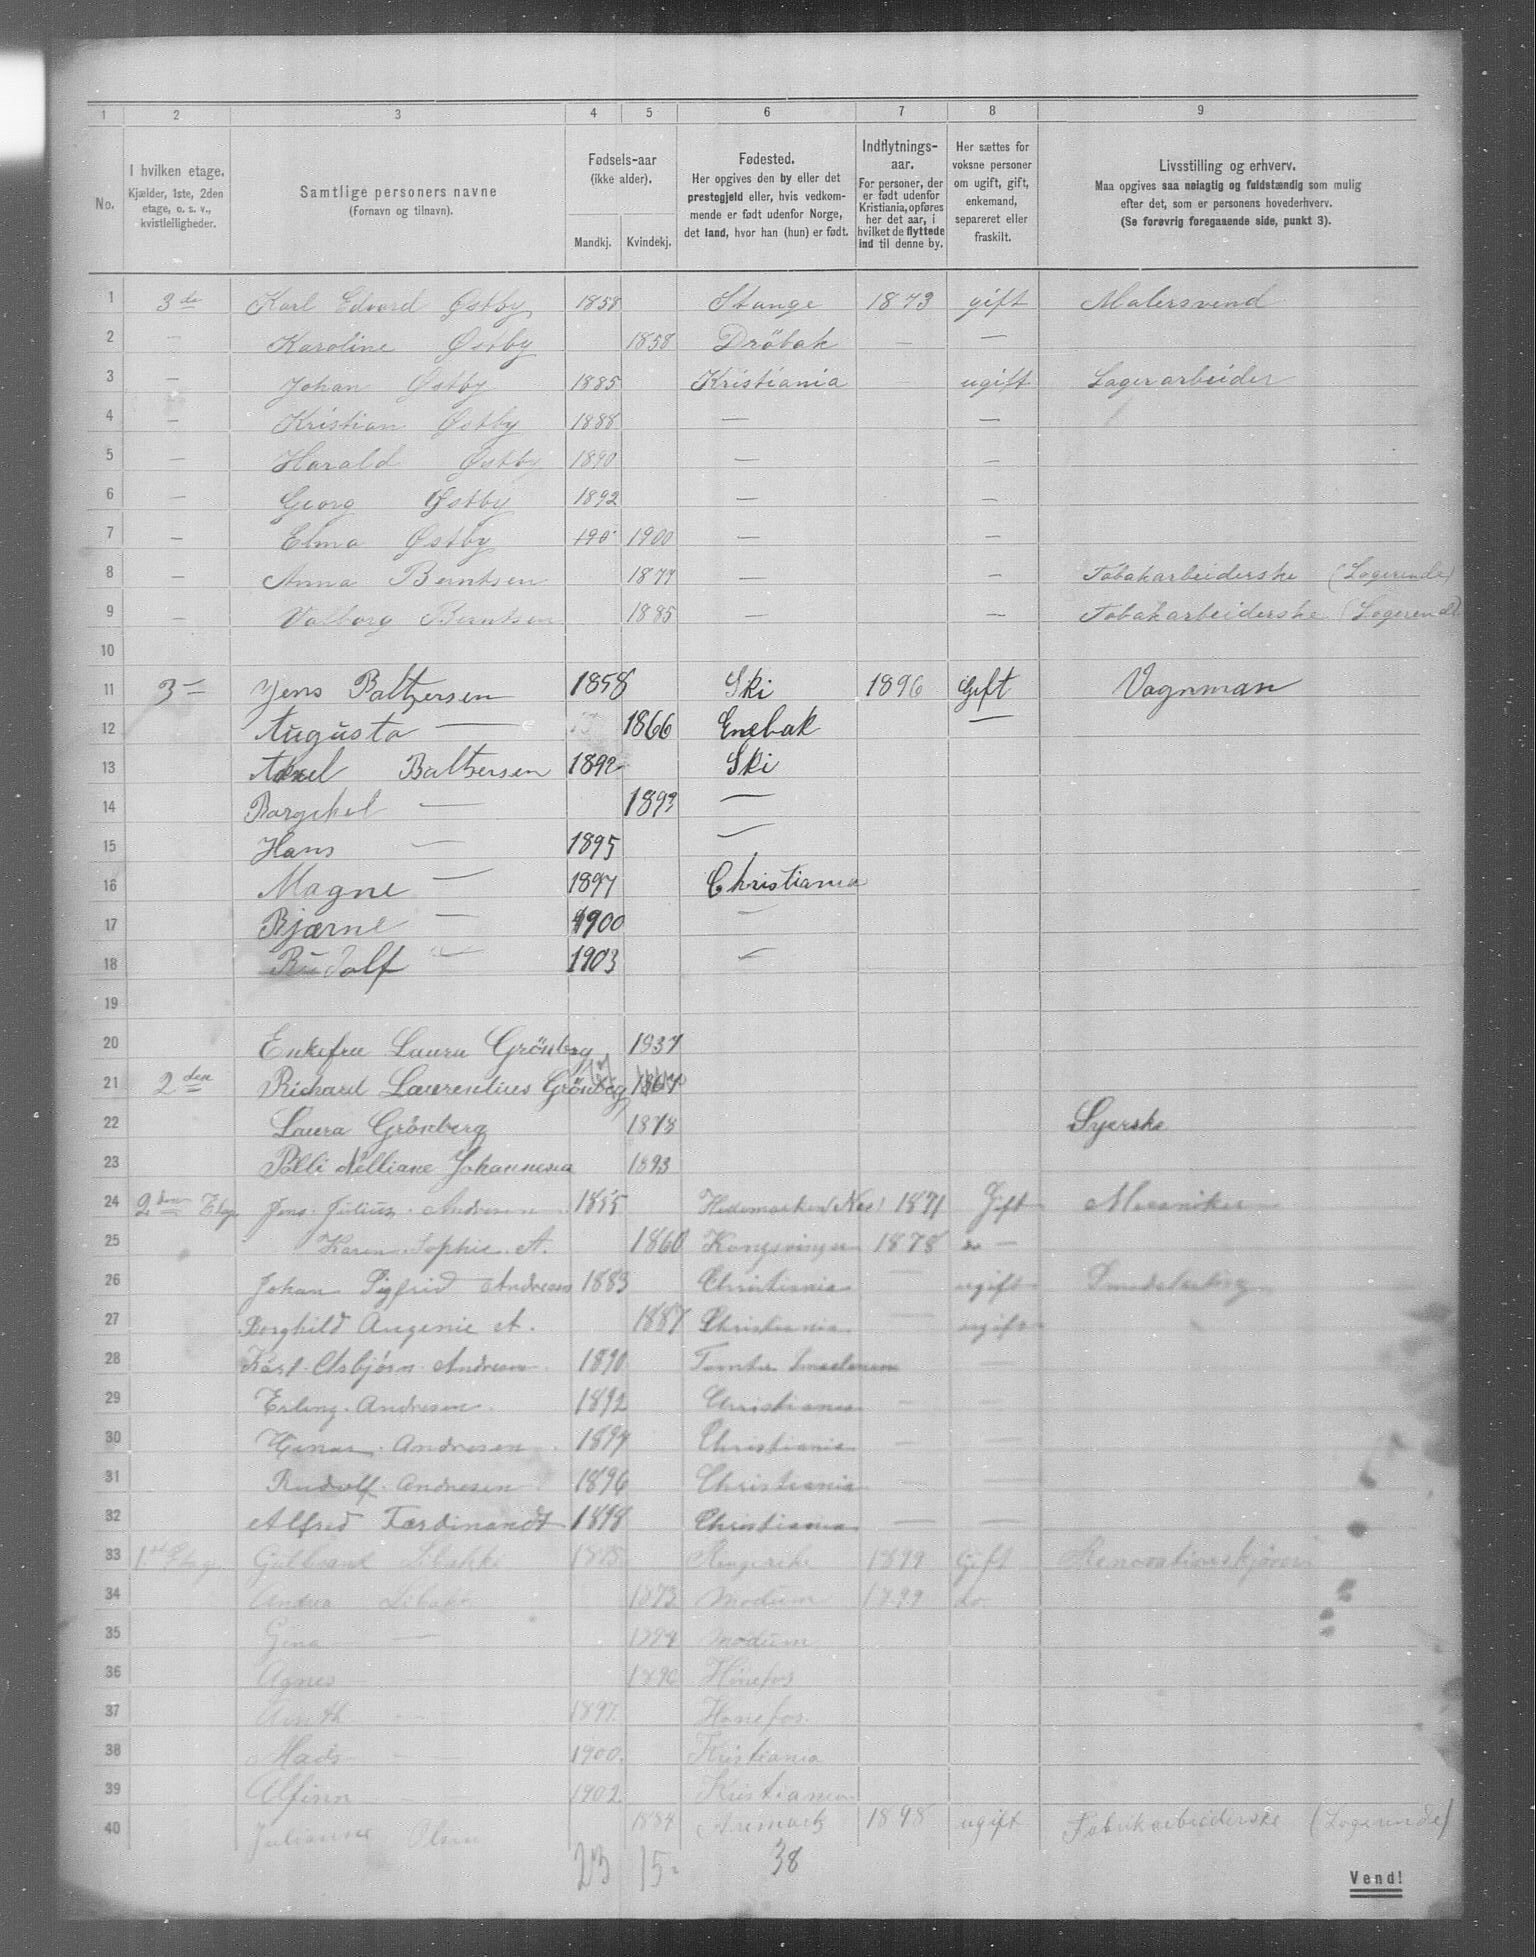 1 2 3 4 5 6 7 8 9
No.
I hvilken etage.
Kjælder, 1ste, 2den
etage, o. s. v.,
kvistleiligheder.
Samtlige personers navne
(Fornavn og tilnavn).
Fødsels-aar
(ikke alder).
Mandkj. Kvindekj.
Fødested.
Her opgives den by eller det
prestegjeld eller, hvis vedkom-
mende er født udenfor Norge,
det land, hvor han (hun) er født.
Indflytnings-
aar.
For personer, der
er født udenfor
Kristiania, opføres
her det aar, i
hvilket de flyttede
ind til denne by.
Her sættes for
voksne personer
om ugift, gift,
enkemand,
separeret eller
fraskilt.
Livsstilling og erhverv.
Maa opgives saa nøiagtig og fuldstændig som mulig
efter det, som er personens hovederhverv.
(Se forøvrig foregaaende side, punkt 3).
1 3de Karl Edvard Østby 1858 Stange 1873 gift Malersvend
2 — Karoline Østby 1858 Drøbak — —
3 — Johan Østby 1885 Kristiania ugift Lagerarbeider
4 — Kristian Østby 1888 — —
5 — Harald Østby 1890 — —
6 — Georg Østby 1892 — —
7 — Elma Østby 190 1900 — —
8 — Anna Berntsen 1877 — — Tobakarbeiderske (Logerende)
9 — Valborg Berntsen 1885 — — Tobakarbeiderske (Logerende)
10
11 3 — Jens Baltzersen 1858 Ski 1896 Gift Vognman
12 Augusta — 1866 Enebak —
13 Axel Baltzersen 1892 Ski
14 — 1893 —
15 Hans — 1895 —
16 Magne — 1897 Christiania
17 Bjarne — 1900 —
18 Rudolf — 1903 —
19
20 Enkefru Laura Grönberg 1837
21 2den Richard Laurentius Grönberg 1867
22 Laura Grönberg 1878 Syerske
23 Polli Nelliane Johannesen 1893
24 2den Etag Jens Julius Andresen 1855 Hedemarken (Nes) 1871 Gift
25 Karen Sophie A. 1860 Kongsvinger 1878 do —
26 Johan Sigfrid Andresen 1883 Christiania — ugift
27 Borghild Augenie A. 1887 Christiania — ugift
28 Karl Asbjørn Andresen 1890
29 Erling Andresen 1892 Christiania — —
30 Andresen 1894 Christiania — —
31 Rudolf Andresen 1896 Christiania — —
32 Alfred Ferdinandt 1898 Christiania — —
33 1ste Etag Gulbrand Libakke 1875 Ringerike 1899 Gift Renovationskjører
34 Andrea Libakk 1873 Modum 1899 do.
35 Gina — 1894 Modum
36 Agnes — 1896 Hønefos
37 — 1897 Hønefos
38 Mads — 1900 Kristiania
39 Alfinn — 1902 Kristiania
40 Julianne Olsen 1884 Aremark 1898 ugift Fabrikarbeiderske (Logerende)
23 15 38
Vend!